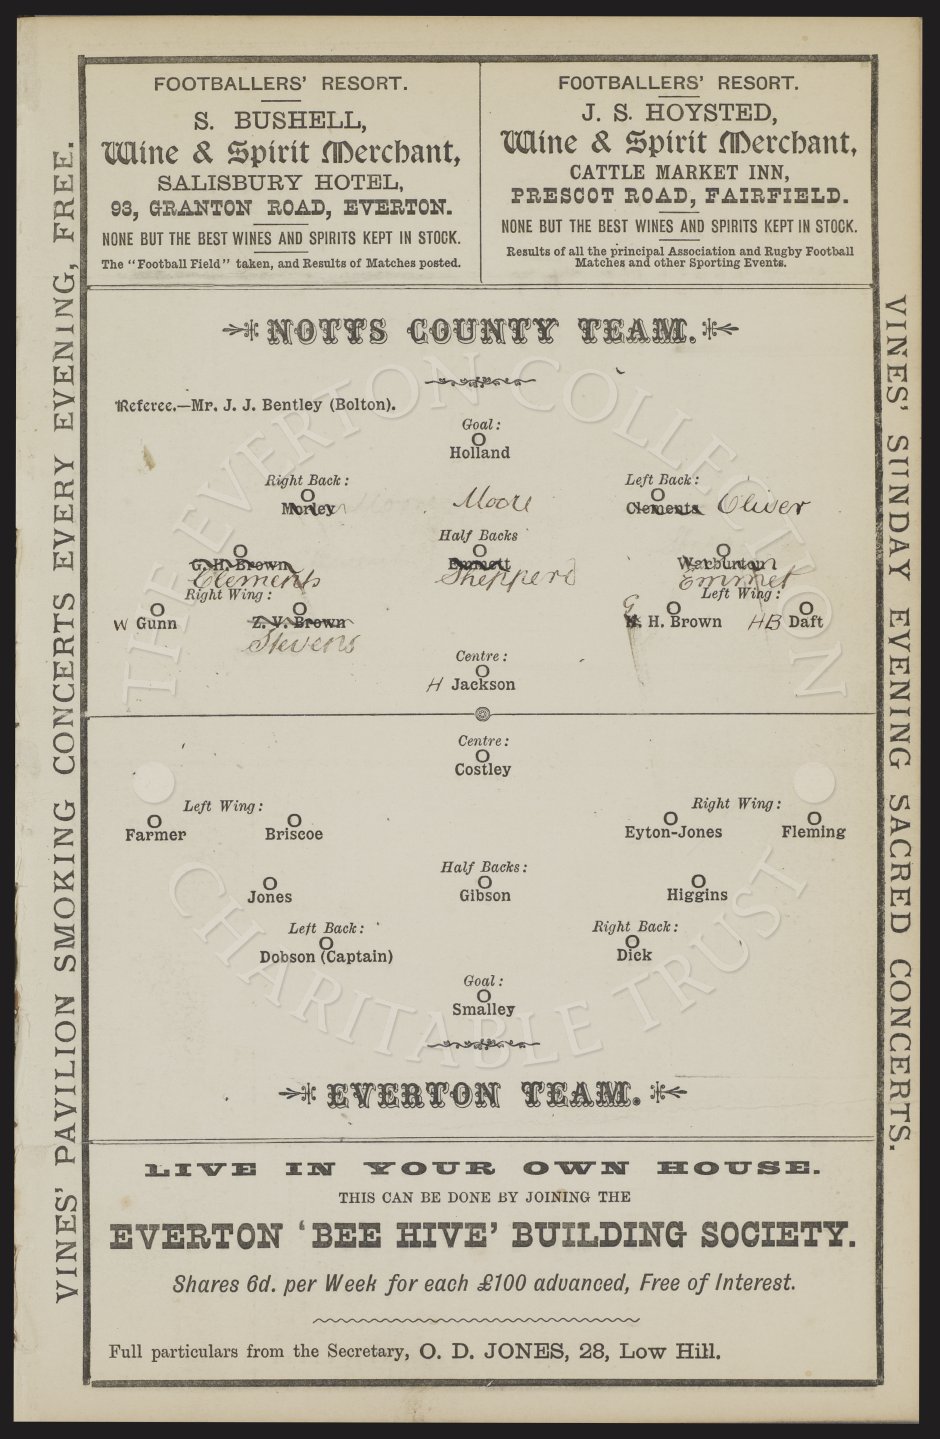 FOOTBALLERS' RESORT.
S. BUSHELL,
Wine & Spirit Merchant,
SALISBURY HOTEL,
93, GRANTON ROAD, EVERTON.
NONE BUT THE BEST WINES AND SPIRITS KEPT IN STOCK.
The "Football Field" taken, and Results of Matches posted.
FOOTBALLERS' RESORT.
J. S. HOYSTED,
Wine & Spirit Merchant,
CATTLE MARKET INN,
PRESCOT ROAD, FAIRFIELD.
NONE BUT THE BEST WINES AND SPIRITS KEPT IN STOCK.
Results of all the principal Association and Rugby Football
Matches and other Sporting Events.
VINES' PAVILION SMOKING CONCERTS EVERY EVENING, FREE.
VINES' SUNDAY EVENING SACRED CONCERTS.
NOTTS COUNTY TEAM.
Referee.—Mr. J. J. Bentley (Bolton).
Goal:
Holland
Right Back:
Left Back:
Morley
Moore
Clements Oliver
Half Backs
G. H. Brown
Emmett
Warburton
Clements
Shepperd
Emmet
Right Wing:
Left Wing:
W Gunn
Z. V. Brown
G
H. H. Brown
HB Daft
Stevens
Centre:
H Jackson
Centre:
Costley
Left Wing:
Right Wing:
Farmer
Briscoe
Eyton-Jones
Fleming
Half Backs:
Jones
Gibson
Higgins
Left Back:
Right Back:
Dobson (Captain)
Dick
Goal:
Smalley
EVERTON TEAM.
LIVE IN YOUR OWN HOUSE.
THIS CAN BE DONE BY JOINING THE
EVERTON 'BEE HIVE' BUILDING SOCIETY.
Shares 6d. per Week for each £100 advanced, Free of Interest.
Full particulars from the Secretary, O. D. JONES, 28, Low Hill.
THE EVERTON COLLECTION
CHARITABLE TRUST